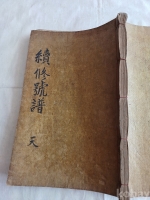 續修號譜
天